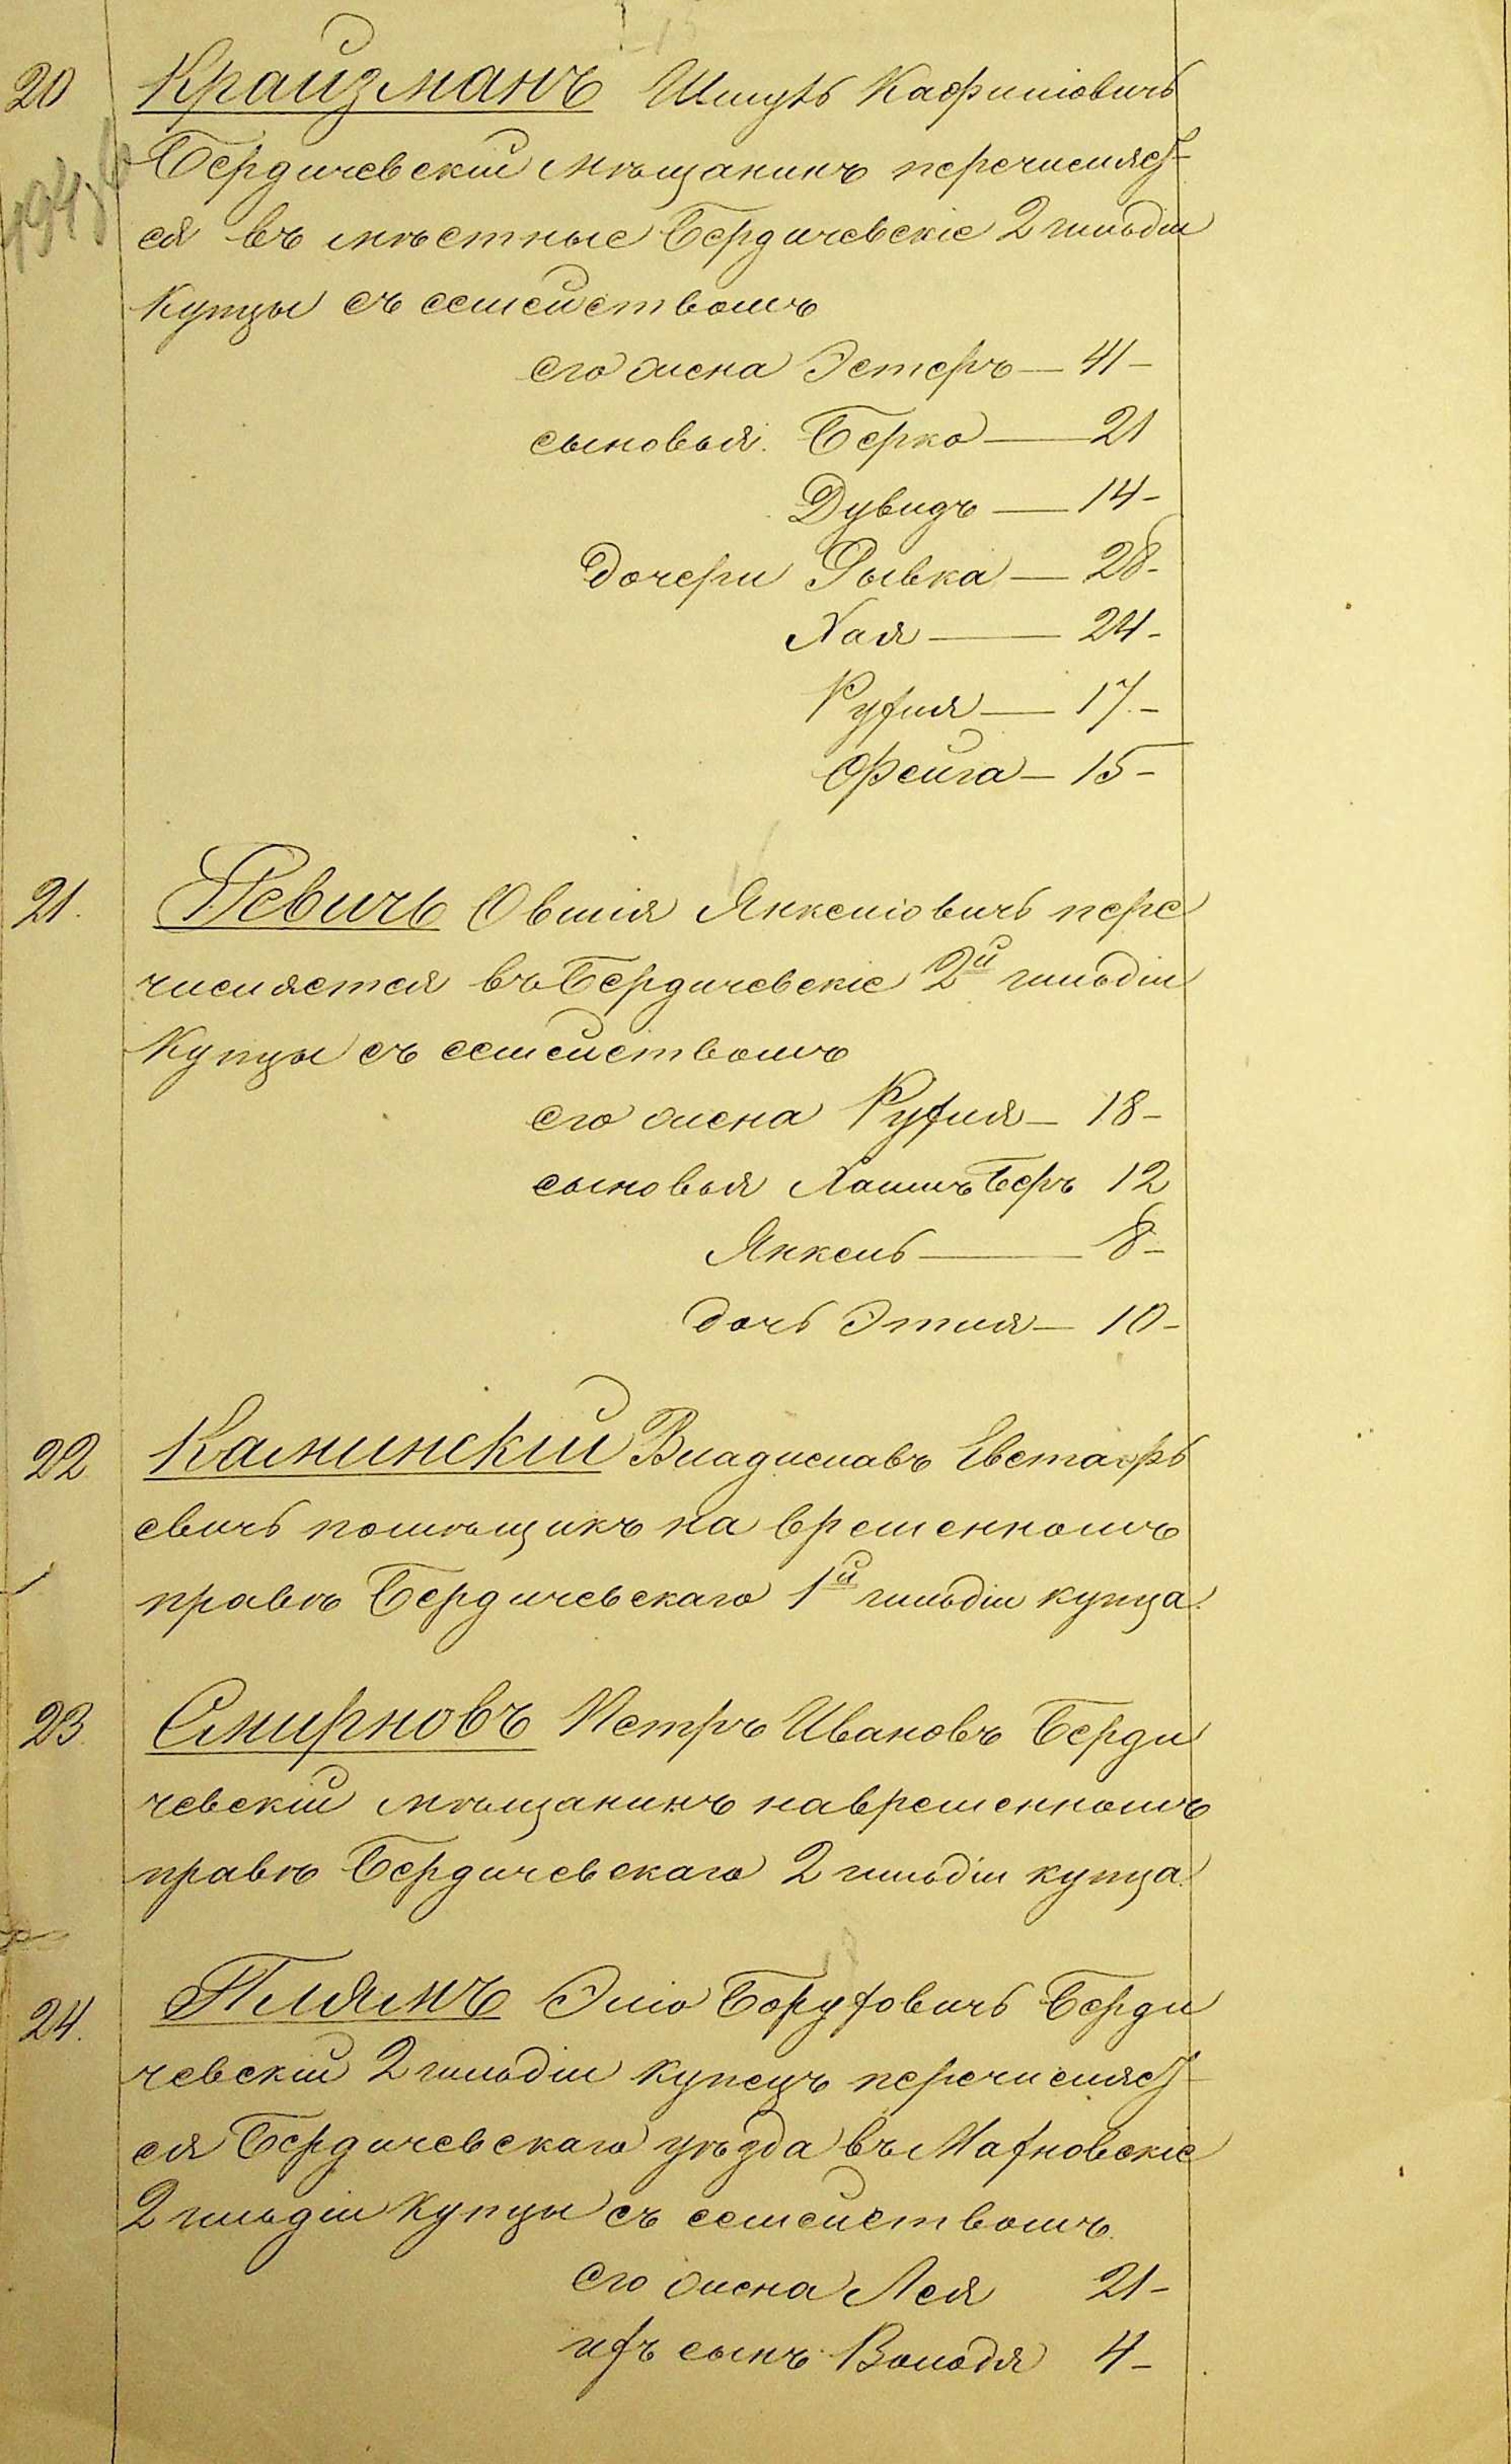 20 Крайзманъ Шмуль
Бердичевскій мѣщанинъ перечисляет-
ся въ мѣстные Бердичевскіе 2 гильдіи
купцы съ семействомъ
его жена Эстеръ — 41 –
сыновья. Берко — 21
Дувидъ — 14 –
дочери Рывка — 28 –
Хая — 24 –
Рухля — 17. –
Фейга — 15 –
21. Ревичъ Овшія Янкеліовичъ пере
числяется въ Бердичевскіе 2й гильдіи
купцы съ семействомъ
его жена Рухля — 18 –
сыновья Хаимъ Беръ 12
Янкель — 8 –
дочь Этля — 10 –
22 Каминскій Владиславъ Евстафь
евичъ помѣщикъ на временномъ
правѣ Бердичевскаго 1й гильдіи купца.
23. Смирновъ Петръ Ивановъ Берди
чевскій мѣщанинъ на временномъ
правѣ Бердичевскаго 2 гильдіи купца.
24. Плямъ Эліо Боруховичъ Берди
чевскій 2 гильдіи купецъ перечисляет-
ся Бердичевскаго уѣзда въ Махновскіе
2 гильдіи купцы съ семействомъ.
его жена Лея 21 –
ихъ сынъ Володя 4 –